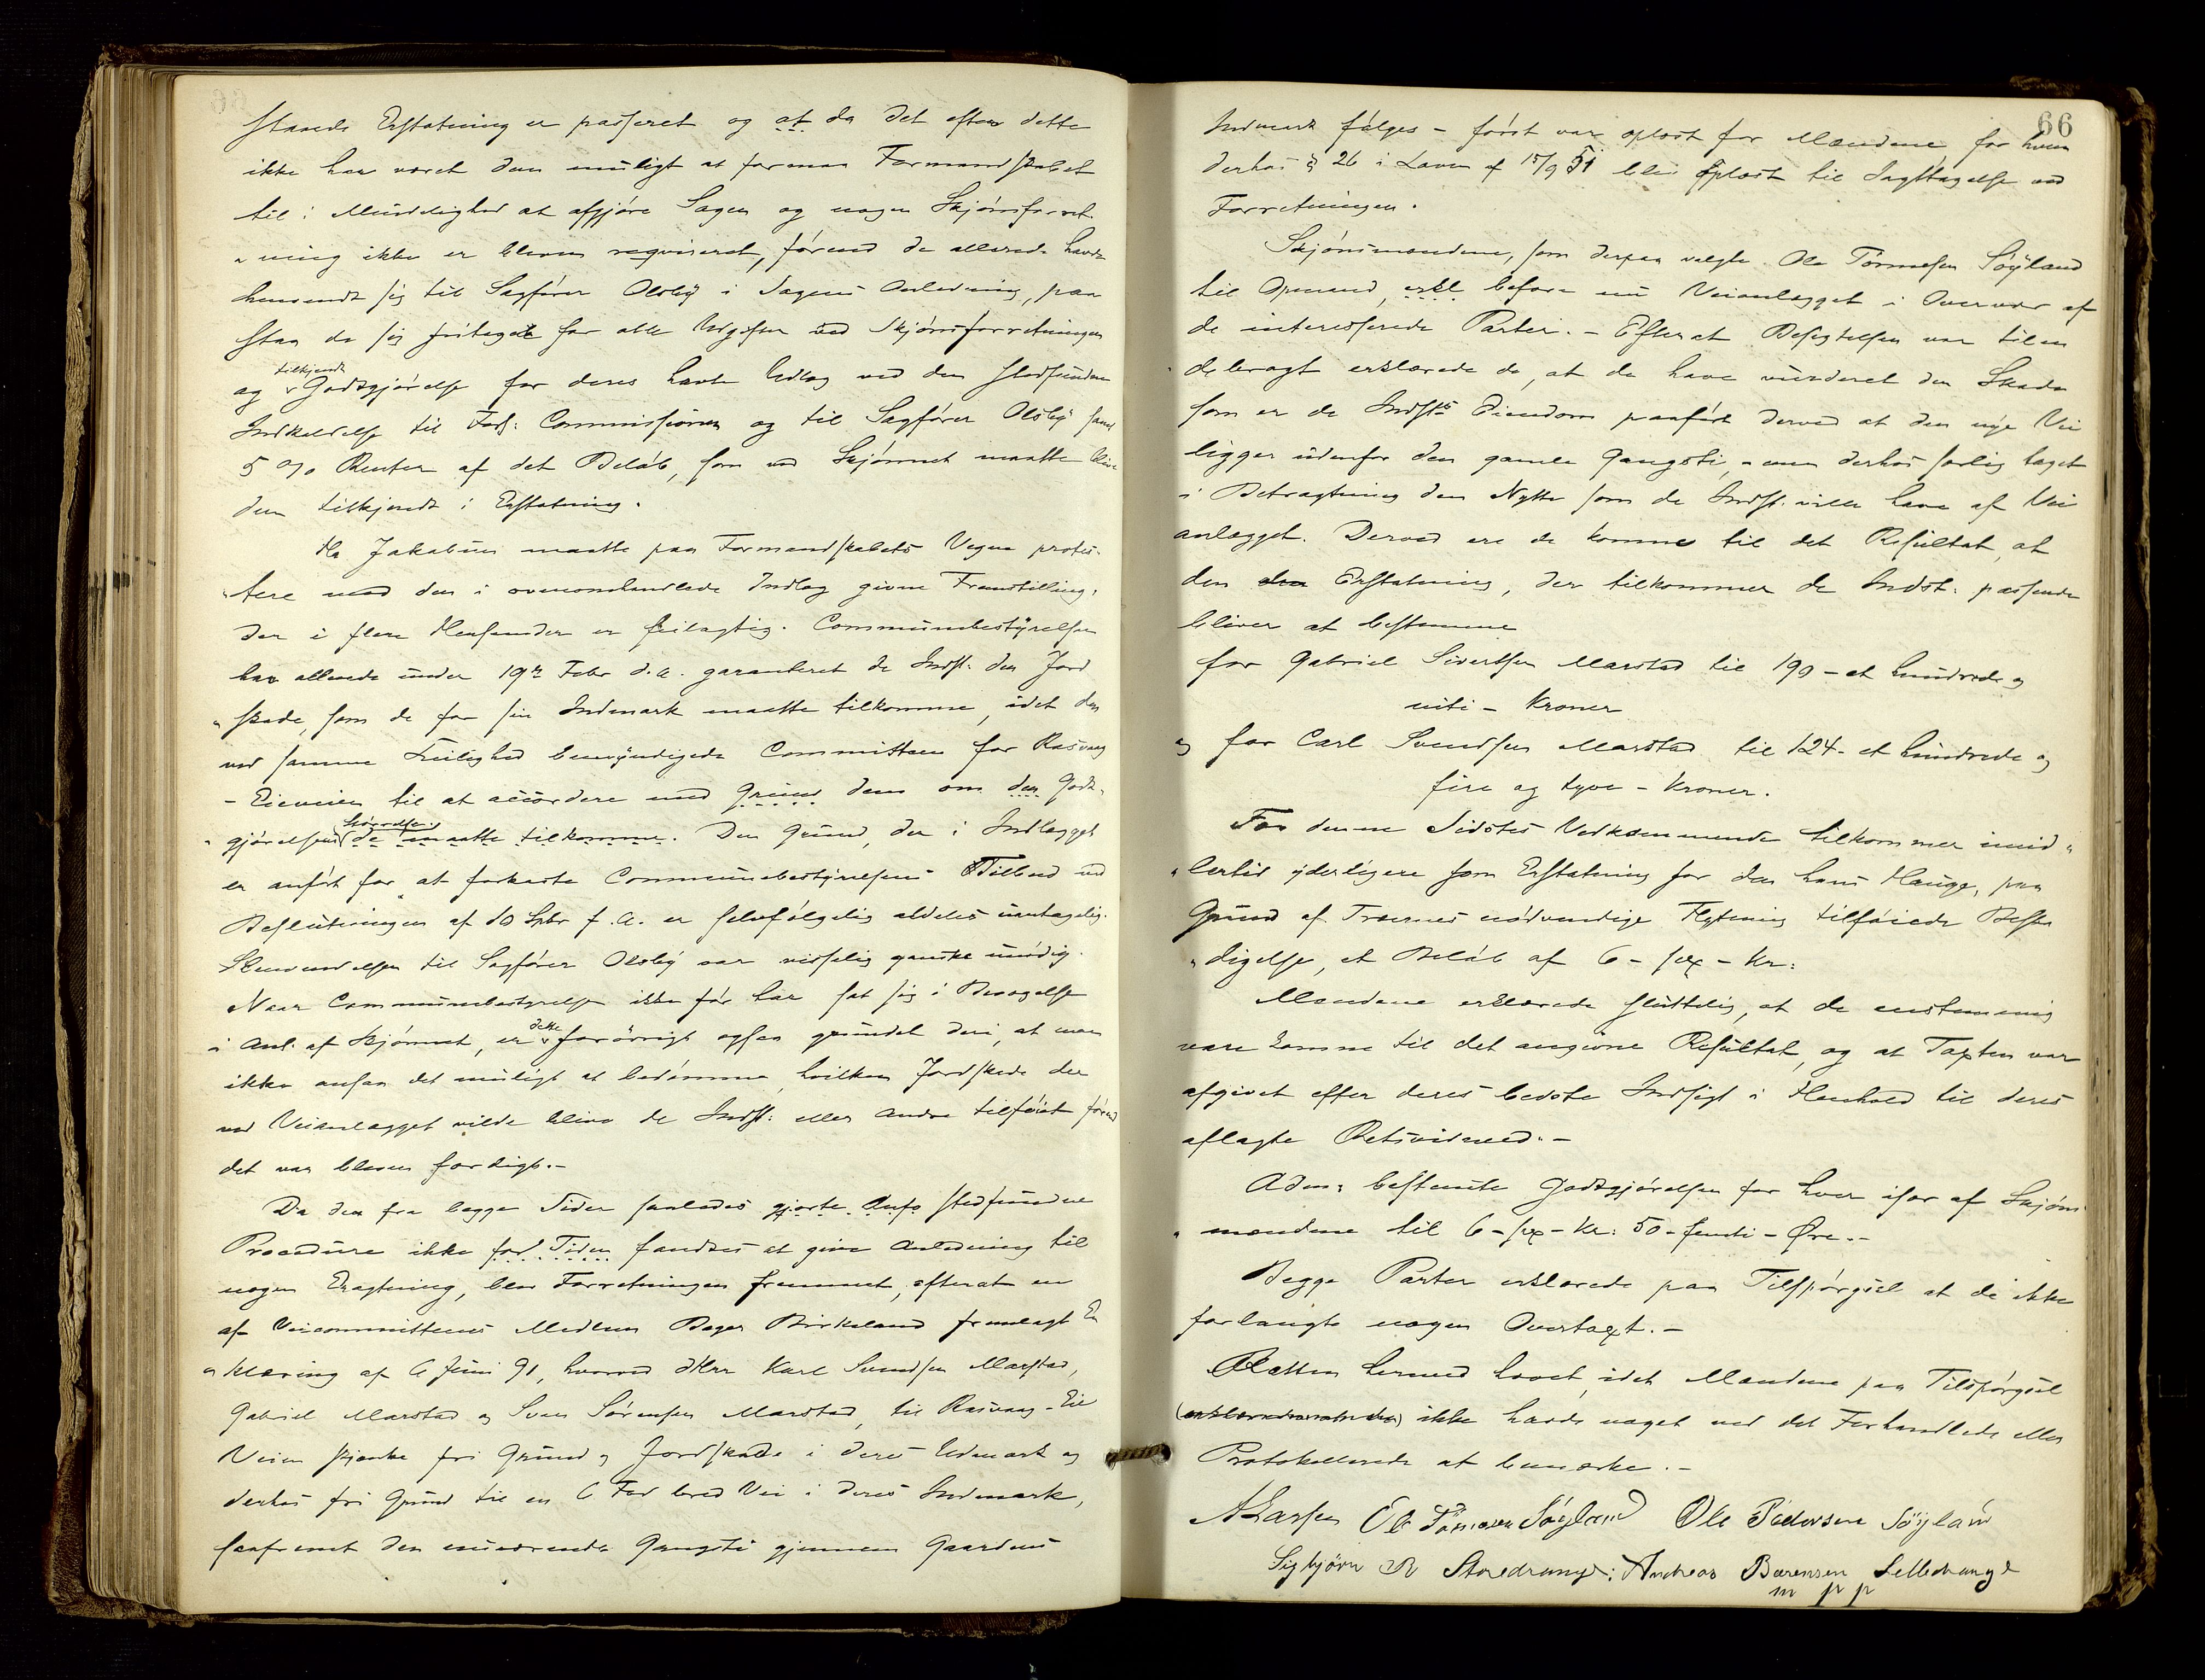 stands Erstatning er passeret og at da det efter dette
ikke har været dem muligt at formaa Formandskabet
til i Mindelighed at afgjøre Sagen og nogen Skjønsforret-
„ning ikke er bleven requireret, førend de allerede havde
henvendt sig til Sagfører Olsby i Sagens Anledning, paa
staa de sig fritaget for alle Udgifter ved Skjønsforretningen
og tilkjendt Godtgjørelse for deres havte Udlæg ved den stedfundne
Indkaldelse til Forl: Commissionen og til Sagfører Olsby samt
5 % Renter af det Beløb, som ved Skjønnet maatte blive
dem tilkjendt i Erstatning.
Hr Jakobsen maatte paa Formandskabets Vegne protes-
„tere mod den i ovenomhandlede Indlæg givne Fremstilling,
der i flere Henseender er feilagtig. Communebestyrelsen
har allerede under 19de Febr d.A. garanteret de Indst. den Jord
„skade, som de for sin Indmark maatte tilkomme, idet den
ved samme Leilighed bemyndigede Committeen for Rasvaag
- Eieveien til at accordere med Grund dem om den Godt-
„gjørelse de maatte tilkomme. Den Grund, der i Indlægget
er anført for at forkaste Communebestyrelsens Tilbud ved
Beslutningen af 10 Sptbr f.A. er selvfølgelig aldeles uantagelig.
Henvendelsen til Sagfører Olsby var visselig ganske unødig.
Naar Communebestyrelsen ikke før har sat sig i Bevægelse
i Anl. af Skjønnet, er dette forøvrigt ogsaa grundet deri, at man
ikke ansaa det muligt at bedømme, hvilken Jordskade der
ved Veianlægget vilde blive de Indst: eller Andre tilføiet førend
det var bleven færdigt.-
Da den fra begge Sider saaledes gjorte Anfø stedfundne
Procedure ikke for Tiden fandtes at give Anledning til
nogen Eragtning, blev Forretningen fremmet, efterat en
af Veicommitteens Medlem Bager Birkeland fremlagt Er
„klæring af 6 Juni 91, hvorved Herr Karl Svendsen Marstad,
Gabriel Marstad og Sven Sørensen Marstad, til Rasvaag-Eie
Veien skjænke fri Grund og Jordskade i deres Udmark og
derhos fri Grund til en 6 Fod bred Vei i deres Indmark,
saafremt den nuværende Gangsti gjennem Gaardens
66
Indmark følges - først var oplæst for Mændene for hvem
derhos § 26 i Loven af 15/9 51 blev oplæst til Iagttagelse ved
Forretningen.
Skjønsmændene, som derpaa valgte Ole Tønnesen Søyland
til Opmand, erkl befare nu Veianlægget i Overvær af
de interesserede Parter. - Efterat Besigtelsen var tilen
debragt erklærede de, at de have vurderet den Skade
som er de Indsts Eiendom paaført derved at den nye Vei
ligger udenfor den gamle Gangsti, - men derhos særlig taget
i Betragtning den Nytte som de Indst. ville have af Vei
anlægget. Derved ere de komne til det Resultat, at
den Erstatning, der tilkommer de Indst. passende
bliver at bestemme
for Gabriel Sivertsen Marstad til 190 - et hundrede og
niti - Kroner
og for Carl Svendsen Marstad til 124 - et hundrede og
fire og tyve - Kroner.
For denne Sidstes Vedkommende tilkommer imid„
„lertid yderligere som Erstatning for den hans Hauge, paa
Grund af Træernes nødvendige Flytning tilføiede Beska
„digelse, et Beløb af 6 - sex - Kr:
Mændene erklærede sluttelig, at de enstemmig
vare komne til det angivne Resultat, og at Taxten var
afgivet efter deres bedste Indsigt i Henhold til deres
aflagte Retsvidneed. -
Adm: bestemte Godtgjørelsen for hver især af Skjøns
„mændene til 6 - sex - Kr: 50 - femti - Øre. -
Begge Parter erklærede paa Tilspørgsel at de ikke
forlangte nogen Overtaxt. -
Retten hermed hævet, idet Mændene paa Tilspørgsel
ikke havde noget ved det Forhandlede eller
Protokollerede at bemærke. -
A Larsen Ole Tønnesen Søyland Ole Pedersen Søyland
Sigbjørn R Storedrange: Andreas Bærensen Lilledrange
m p p